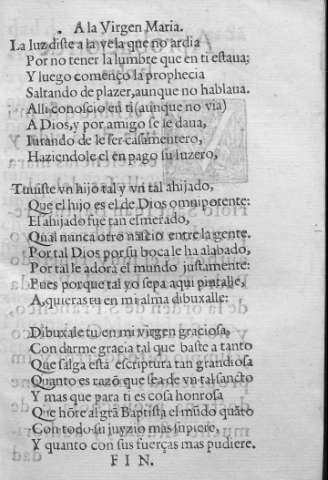 A la Virgen Maria.
La luz diste a la vela que no ardia
Por no tener la lumbre que en ti estaua:
Y luego començo la prophecia
Saltando de plazer, aunque no hablaua.
Alli conoscio en ti (aunque no via)
A Dios, y por amigo se le daua,
Iurando de le ser casamentero,
Haziendole el en pago su luzero,
Tuuiste vn hijo tal y vn tal ahijado,
Que el hijo es el de Dios omnipotente:
El ahijado fue tan esmerado,
Qual nunca otro nascio entre la gente.
Por tal Dios por su boca le ha alabado,
Por tal le adora el mundo justamente:
Pues porque tal yo sepa aqui pintalle,
A, quieras tu en mi alma dibuxalle:
Dibuxale tu en mi virgen graciosa,
Con darme gracia tal que baste a tanto
Que salga esta escriptura tan grandiosa
Quanto es razõ que sea de vn tal sancto
Y mas que para ti es cosa honrosa
Que hõre al grã Baptista el mũdo quãto
Con todo su juyzio mas supiere,
Y quanto con sus fuerças mas pudiere.
FIN.